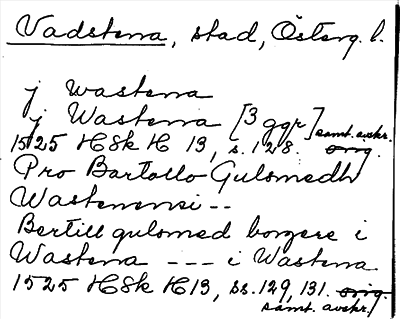 Vadstena, stad, Österg. l.
j wastena
j Wastena [3 ggr] samt. avskr.
1525 HSk H 13, s. 128. orig.
Pro Bartollo Gulsmedh
Wastenensi --
Bertill gulsmed borgere i
Wastena --- i Wastena
1525 HSk H13, ss. 129, 131. orig.
samt. avskr.